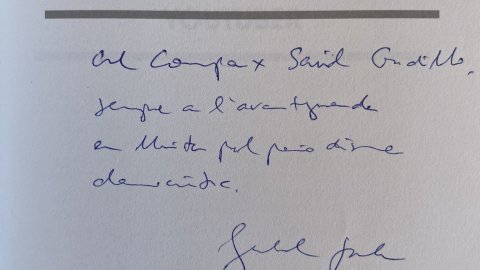 Al Company Saül Gordillo,
sempre a l'avantguarda
en lluita pel periodisme
democràtic.